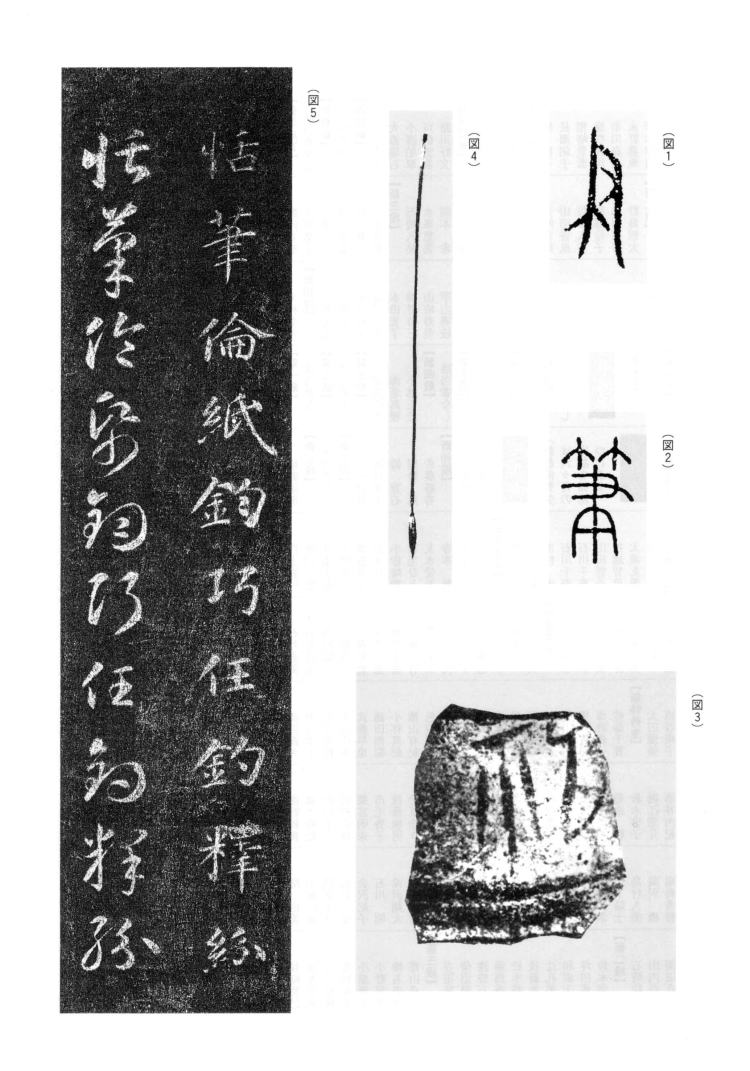 (図1)
聿
(図2)
筆
(図3)
祀
(図4)
(図5)
恬筆倫紙鈞巧任釣釋紛
恬筆倫紙鈞巧任釣釋紛